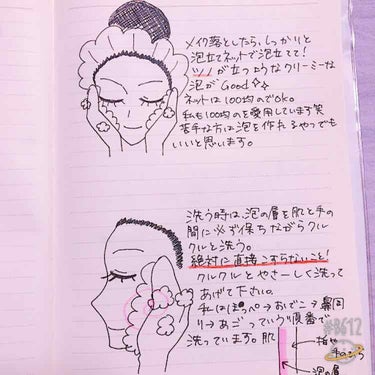 メイク落としたら、しっかりと
泡立てネットで泡立てて!
ツノが立つようなクリーミーな
泡がGood✧✧
ネットは100均のでOK。
私も100均のを愛用しています笑
苦手な方は泡を作れるやつでも
いいと思います。
洗う時は泡の層を肌と手の
間に必ず保ちながらクル
クルと洗う。
絶対に直接こすらないこと!
クルクルとやさーしく洗って
あげて下さい。
私はほっぺ→おでこ→鼻周
り→あごっていう順番で
洗っています。
肌
指や
手のひら
泡の層
#B612